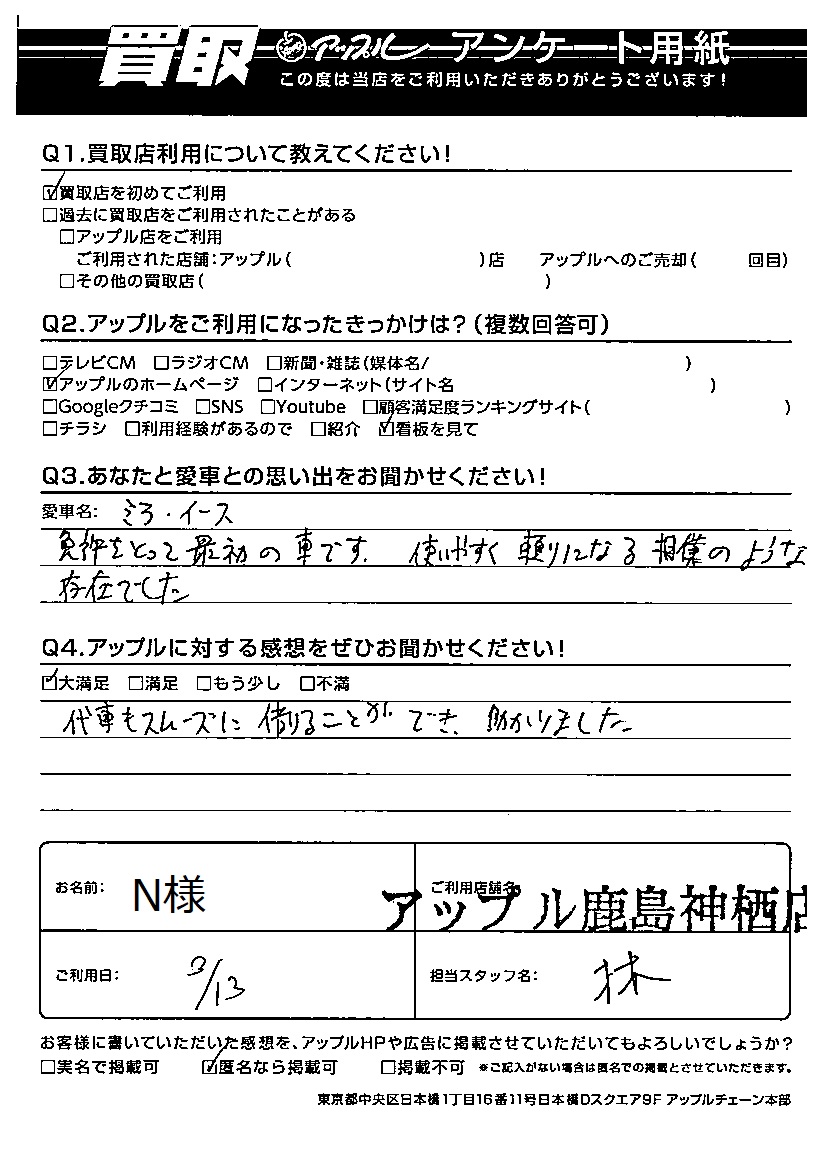 買取 アップル アンケート用紙
この度は当店をご利用いただきありがとうございます!
Q1.買取店利用について教えてください!
☑買取店を初めてご利用
□過去に買取店をご利用されたことがある
□アップル店をご利用
ご利用された店舗:アップル( )店 アップルへのご売却( 回目)
□その他の買取店( )
Q2.アップルをご利用になったきっかけは?(複数回答可)
□テレビCM □ラジオCM □新聞・雑誌(媒体名/ )
☑アップルのホームページ □インターネット(サイト名 )
□Googleクチコミ □SNS □Youtube □顧客満足度ランキングサイト( )
□チラシ □利用経験があるので □紹介 ☑看板を見て
Q3.あなたと愛車との思い出をお聞かせください!
愛車名: ミラ・イース
免許をとって最初の車です。 使いやすく 頼りになる 相棒のような
存在でした
Q4.アップルに対する感想をぜひお聞かせください!
☑大満足 □満足 □もう少し □不満
代車もスムーズに 借りることが でき、助かりました。
お名前: N様
ご利用店舗名:
アップル鹿島神栖店
ご利用日: 9/13
担当スタッフ名: 林
お客様に書いていただいた感想を、アップルHPや広告に掲載させていただいてもよろしいでしょうか?
□実名で掲載可 ☑匿名なら掲載可 □掲載不可 ※ご記入がない場合は匿名での掲載とさせていただきます。
東京都中央区日本橋1丁目16番11号日本橋Dスクエア9F アップルチェーン本部